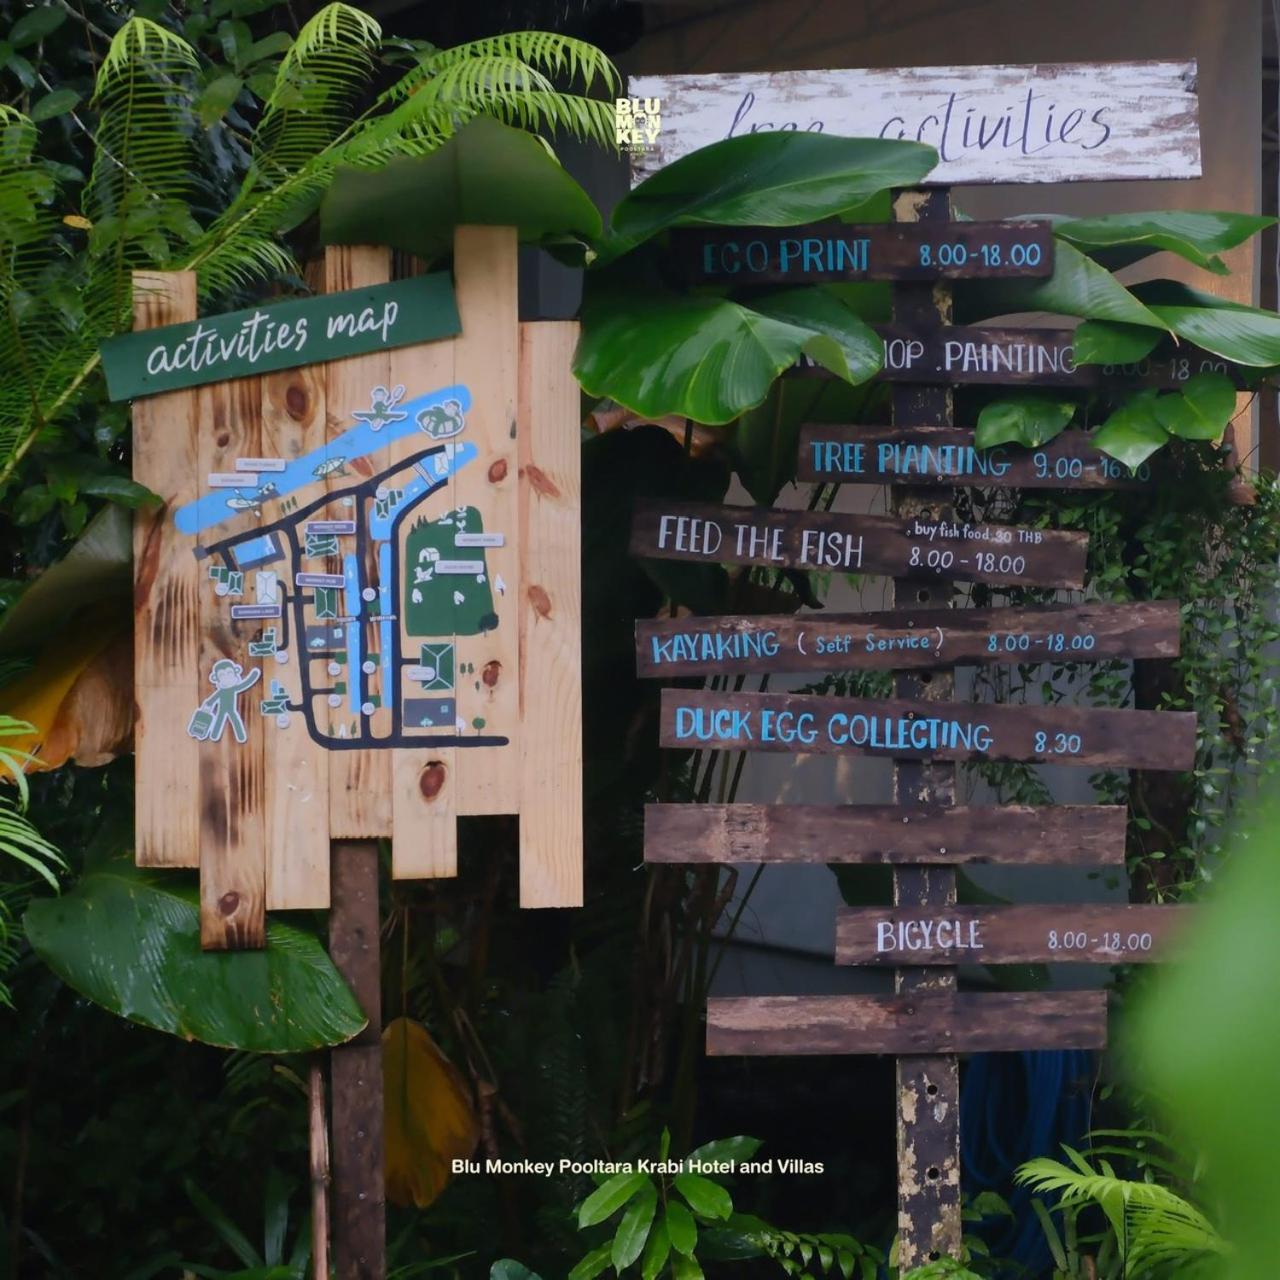 BLU
MON
KEY
POOLTARA
free activities
activities map
ECO PRINT 8.00-18.00
PAINTING 8.00-18.00
TREE PlANTING 9.00-16.00
FEED THE FISH . buy fish food 30 THB
8.00 - 18.00
KAYAKING ( Self Service ) 8.00-18.00
DUCK EGG COLLECTING 8.30
BICYCLE 8.00-18.00
Blu Monkey Pooltara Krabi Hotel and Villas